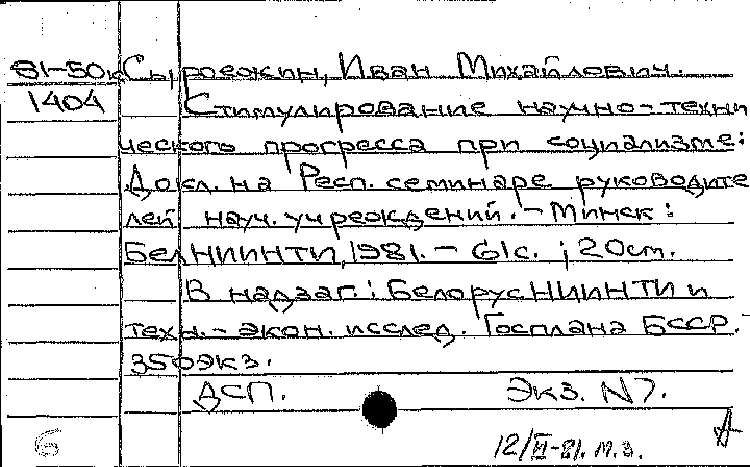 81-50к Сыроежкин, Иван Михайлович.
1404 Стимулирование научно-техни
ческого прогресса при социализме:
Докл. на Респ. семинаре руководите
лей науч. учреждений. - Минск:
БелНИИНТИ, 1981. - 61с. ; 20см.
В надзаг.: БелорусНИИНТИ и
техн.-экон. исслед. Госплана БССР.-
350экз.
ДСП. Экз. N7.
Б
12/VI-81. м.з.